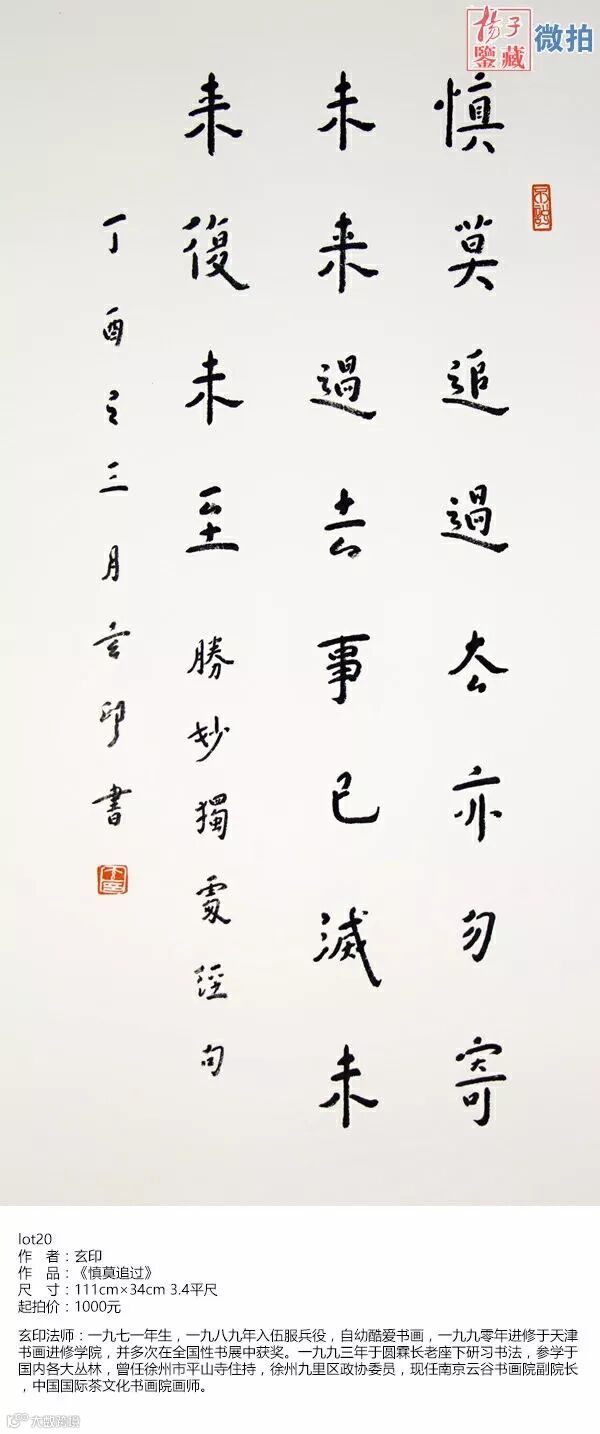 揚子
鑒藏
微拍
慎莫追過去亦勿寄
未来過去事已滅未
来復未至 勝妙獨處經句
丁酉之三月玄印書
lot20
作 者：玄印
作 品：《慎莫追过》
尺 寸：111cm×34cm 3.4平尺
起拍价：1000元
玄印法师：一九七一年生，一九八九年入伍服兵役，自幼酷爱书画，一九九零年进修于天津
书画进修学院，并多次在全国性书展中获奖。一九九三年于圆霖长老座下研习书法，参学于
国内各大丛林，曾任徐州市平山寺住持，徐州九里区政协委员，现任南京云谷书画院副院长
，中国国际茶文化书画院画师。
大数跨境